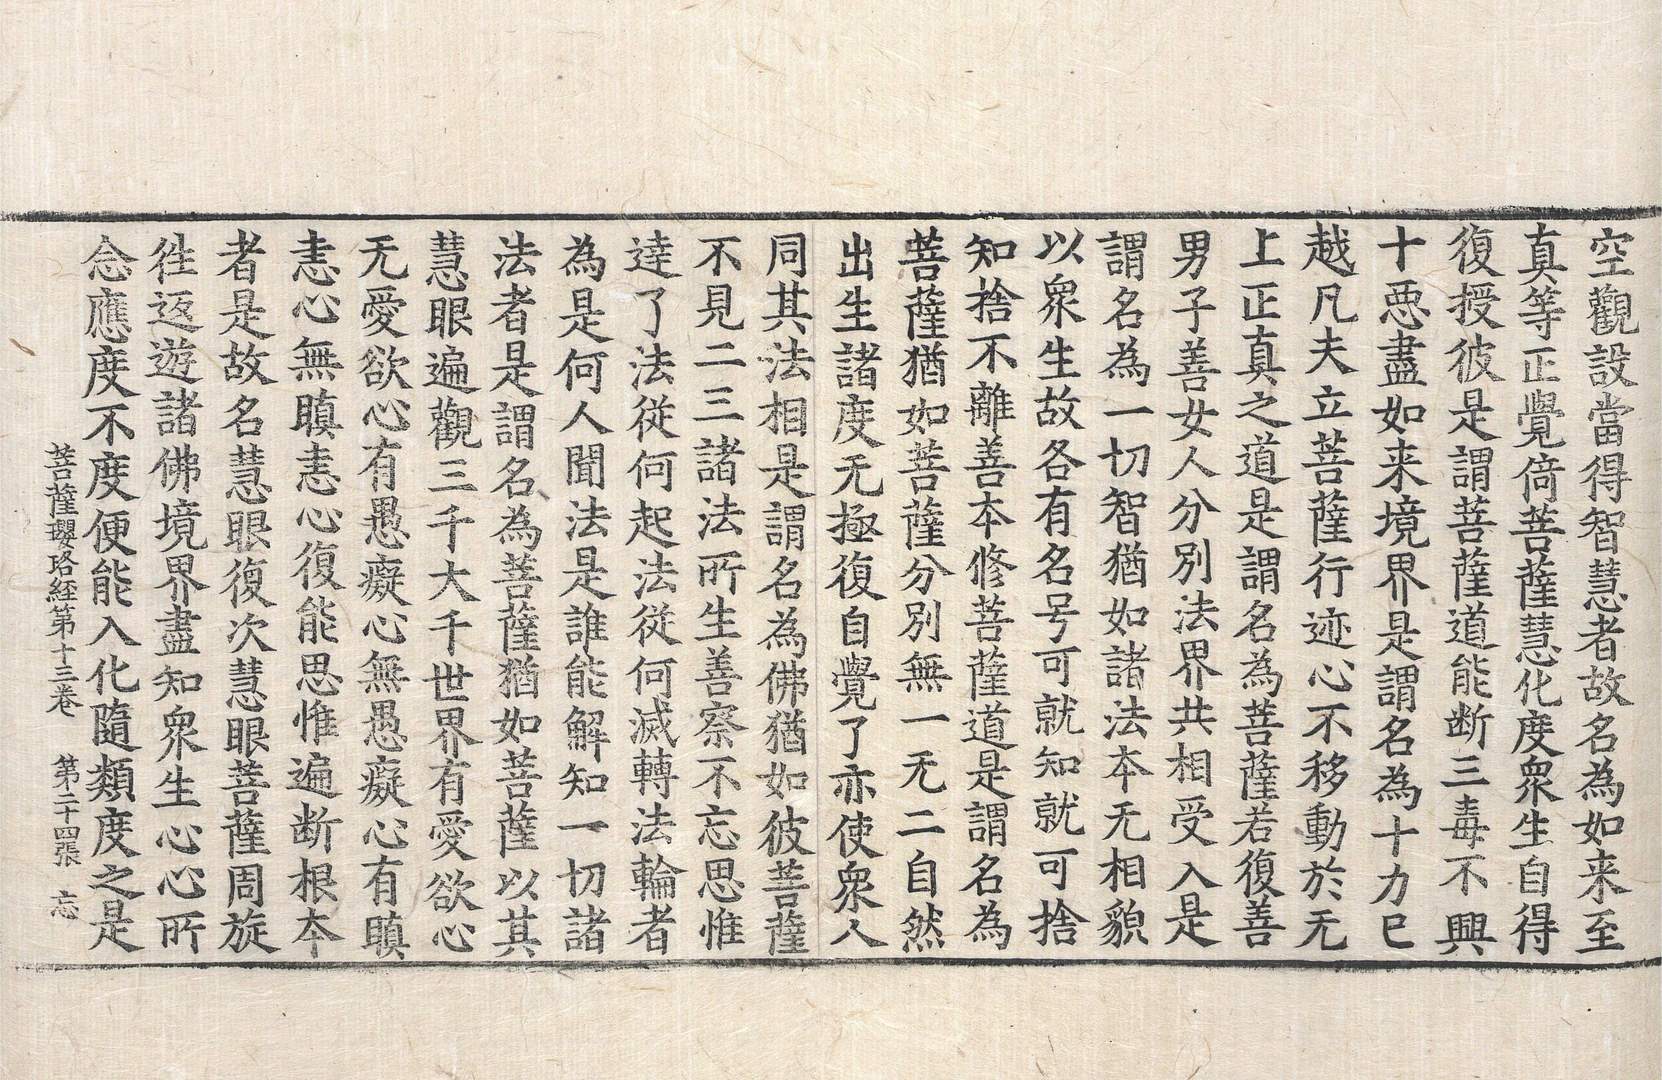 空觀設當得智慧者故名為如来至
真等正覺倚菩薩慧化度衆生自得
復授彼是謂菩薩道能断三毒不興
十惡盡如来境界是謂名為十力已
越凡夫立菩薩行迹心不移動於无
上正真之道是謂名為菩薩若復善
男子善女人分別法界共相受入是
謂名為一切智猶如諸法本无相貌
以衆生故各有名号可就知就可捨
知捨不離善本修菩薩道是謂名為
菩薩猶如菩薩分別無一无二自然
出生諸度无極復自覺了亦使衆人
同其法相是謂名為佛猶如彼菩薩
不見二三諸法所生善察不忘思惟
達了法従何起法従何滅轉法輪者
為是何人聞法是誰能解知一切諸
法者是謂名為菩薩猶如菩薩以其
慧眼遍觀三千大千世界有愛欲心
无愛欲心有愚癡心無愚癡心有瞋
恚心無瞋恚心復能思惟遍断根本
者是故名慧眼復次慧眼菩薩周旋
往返遊諸佛境界盡知衆生心心所
念應度不度便能入化隨類度之是
菩薩瓔珞経第十三卷　第二十四張　忘